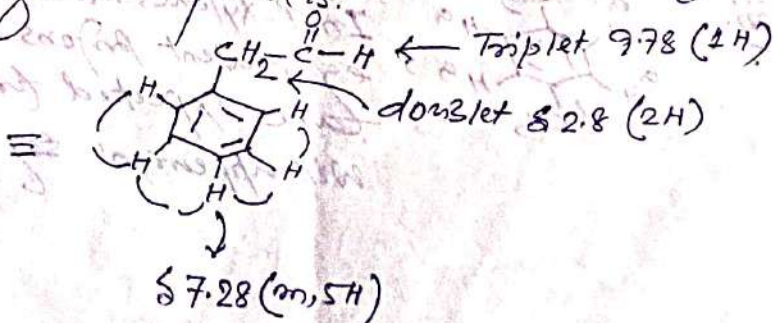 O
CH2-C-H ← Triplet 9.78 (1H)
H H doublet δ 2.8 (2H)
≡ H H
H
δ 7.28 (m, 5H)